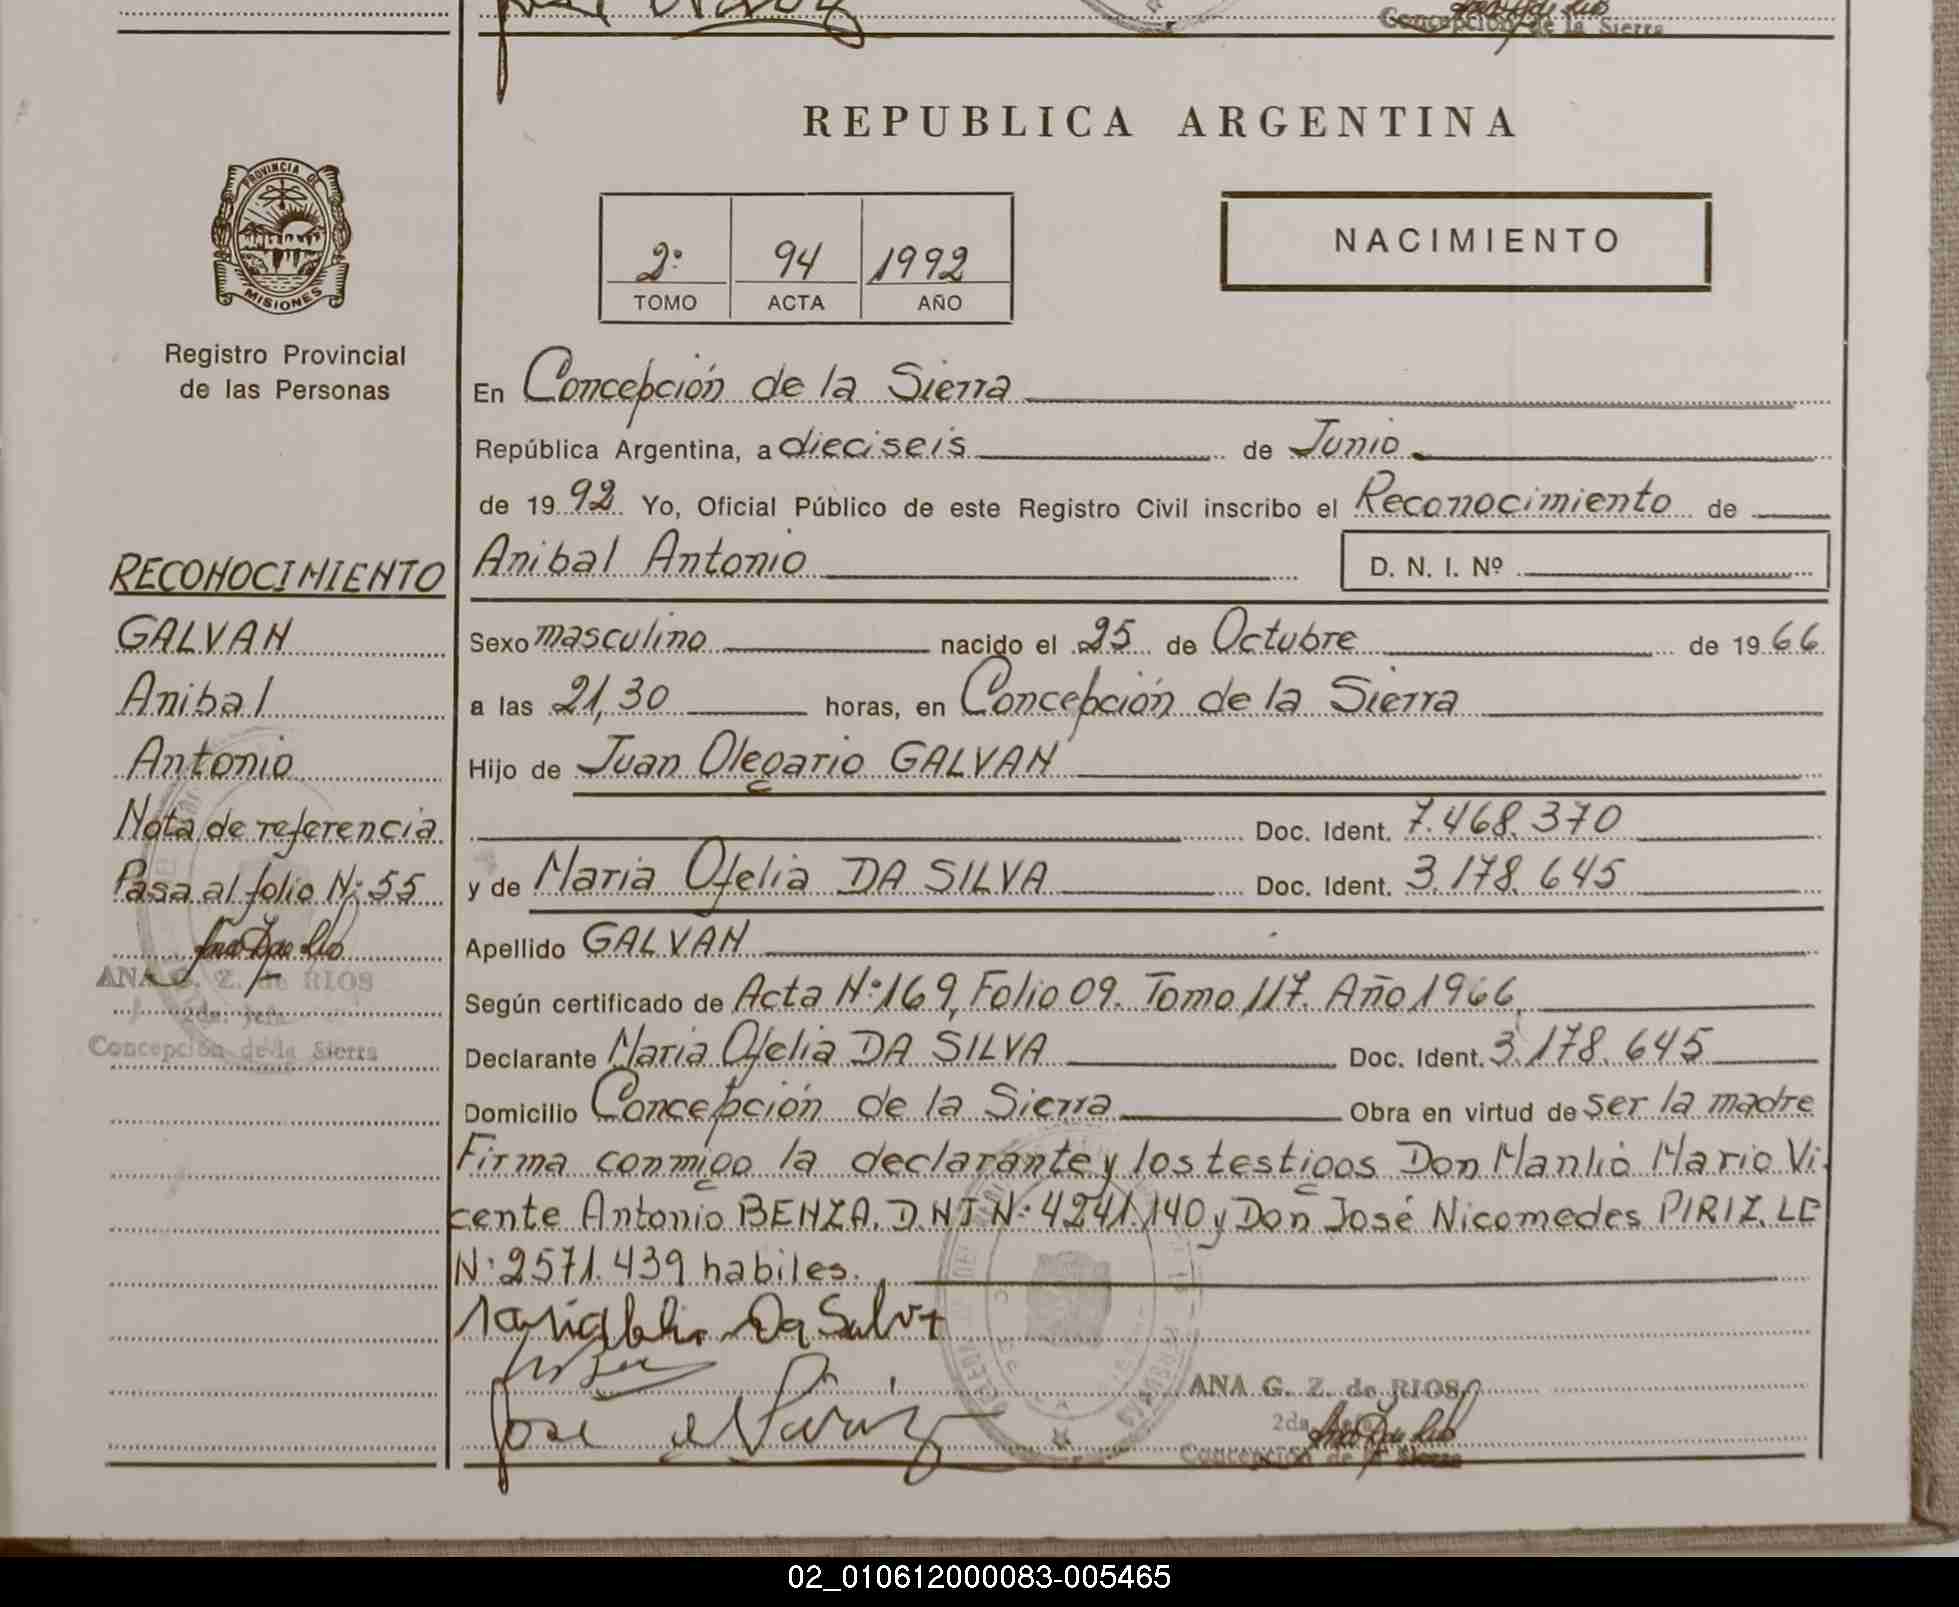 Concepción de la Sierra
REPUBLICA ARGENTINA
PROVINCIA DE
MISIONES
Registro Provincial
de las Personas
2º 94 1992
TOMO ACTA AÑO
NACIMIENTO
En Concepción de la Sierra
República Argentina, a dieciseis de Junio
de 1992 Yo, Oficial Público de este Registro Civil inscribo el Reconocimiento de
Anibal Antonio D. N. I. Nº
Sexo masculino nacido el 25 de Octubre de 1966
a las 21,30 horas, en Concepción de la Sierra
Hijo de Juan Olegario GALVAN
Doc. Ident. 7.468.370
y de Maria Ofelia DA SILVA Doc. Ident. 3.178.645
Apellido GALVAN
Según certificado de Acta Nº 169, Folio 09. Tomo 117. Año 1966,
Declarante Maria Ofelia DA SILVA Doc. Ident. 3.178.645
Domicilio Concepción de la Sierra Obra en virtud de ser la madre
Firma conmigo la declarante y los testigos Don Manlio Mario Vi
cente Antonio BENZA. D.N.I Nº 4241.140 y Don José Nicomedes PIRIZ. LE
Nº 2571.439 habiles.
Da Silva
José
ANA G. Z. de RIOS
2da.
Concepción de la Sierra
RECONOCIMIENTO
GALVAN
Anibal
Antonio
Nota de referencia
Pasa al folio Nº 55
ANA G. Z. de RIOS
2da. Jefa
Concepción de la Sierra
02_010612000083-005465